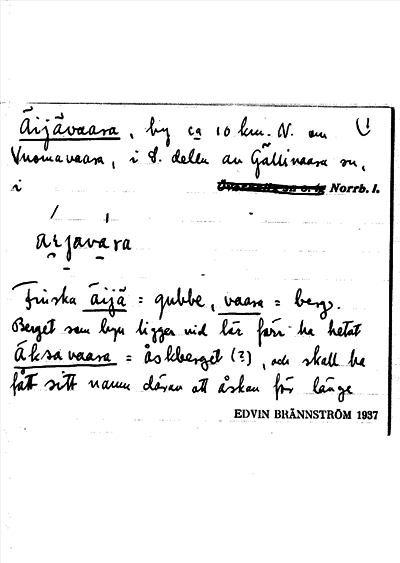 Äijävaara, by ca 10 km. N. om
Vuomavaara, i S. delen av Gällivaara sn,
i Norrb. l.
äi̯javara
Finska äijä = gubbe, vaara = berg.
Berget som byn ligger vid lär förr ha hetat
Äksavaara = åskberget (?), och skall ha
fått sitt namn därav att åskan för länge
EDVIN BRÄNNSTRÖM 1937